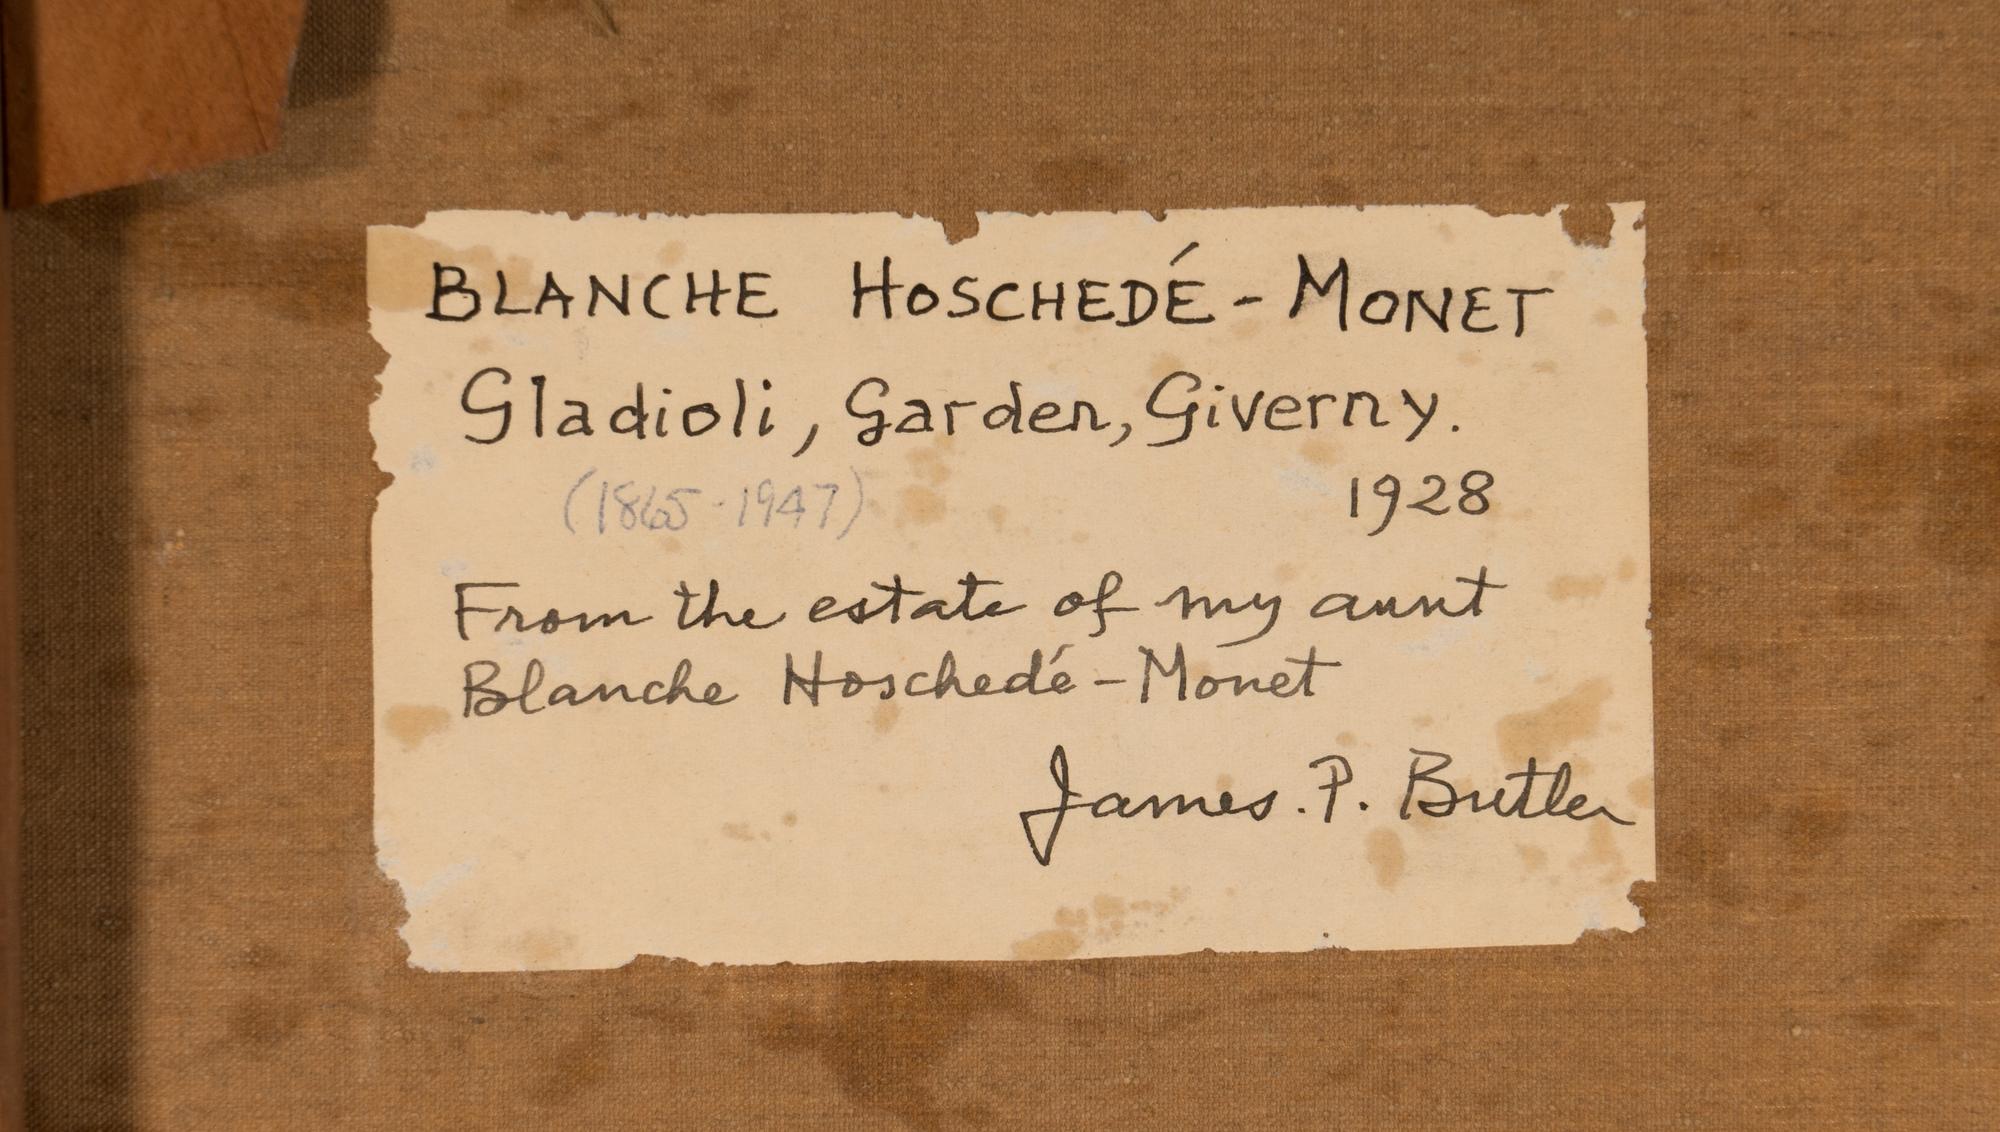 BLANCHE HOSCHEDÉ - MONET
Gladioli, Garden, Giverny.
(1865-1947) 1928
From the estate of my aunt
Blanche Hoschedé-Monet
James. P. Butler